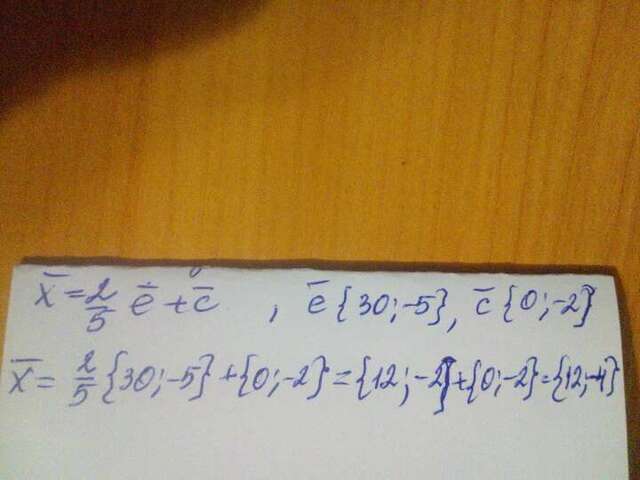 x̄ = 2/5 ē + c̄ , ē {30; -5}, c̄ {0; -2}
x̄ = 2/5 {30; -5} + {0; -2} = {12; -2} + {0; -2} = {12; -4}